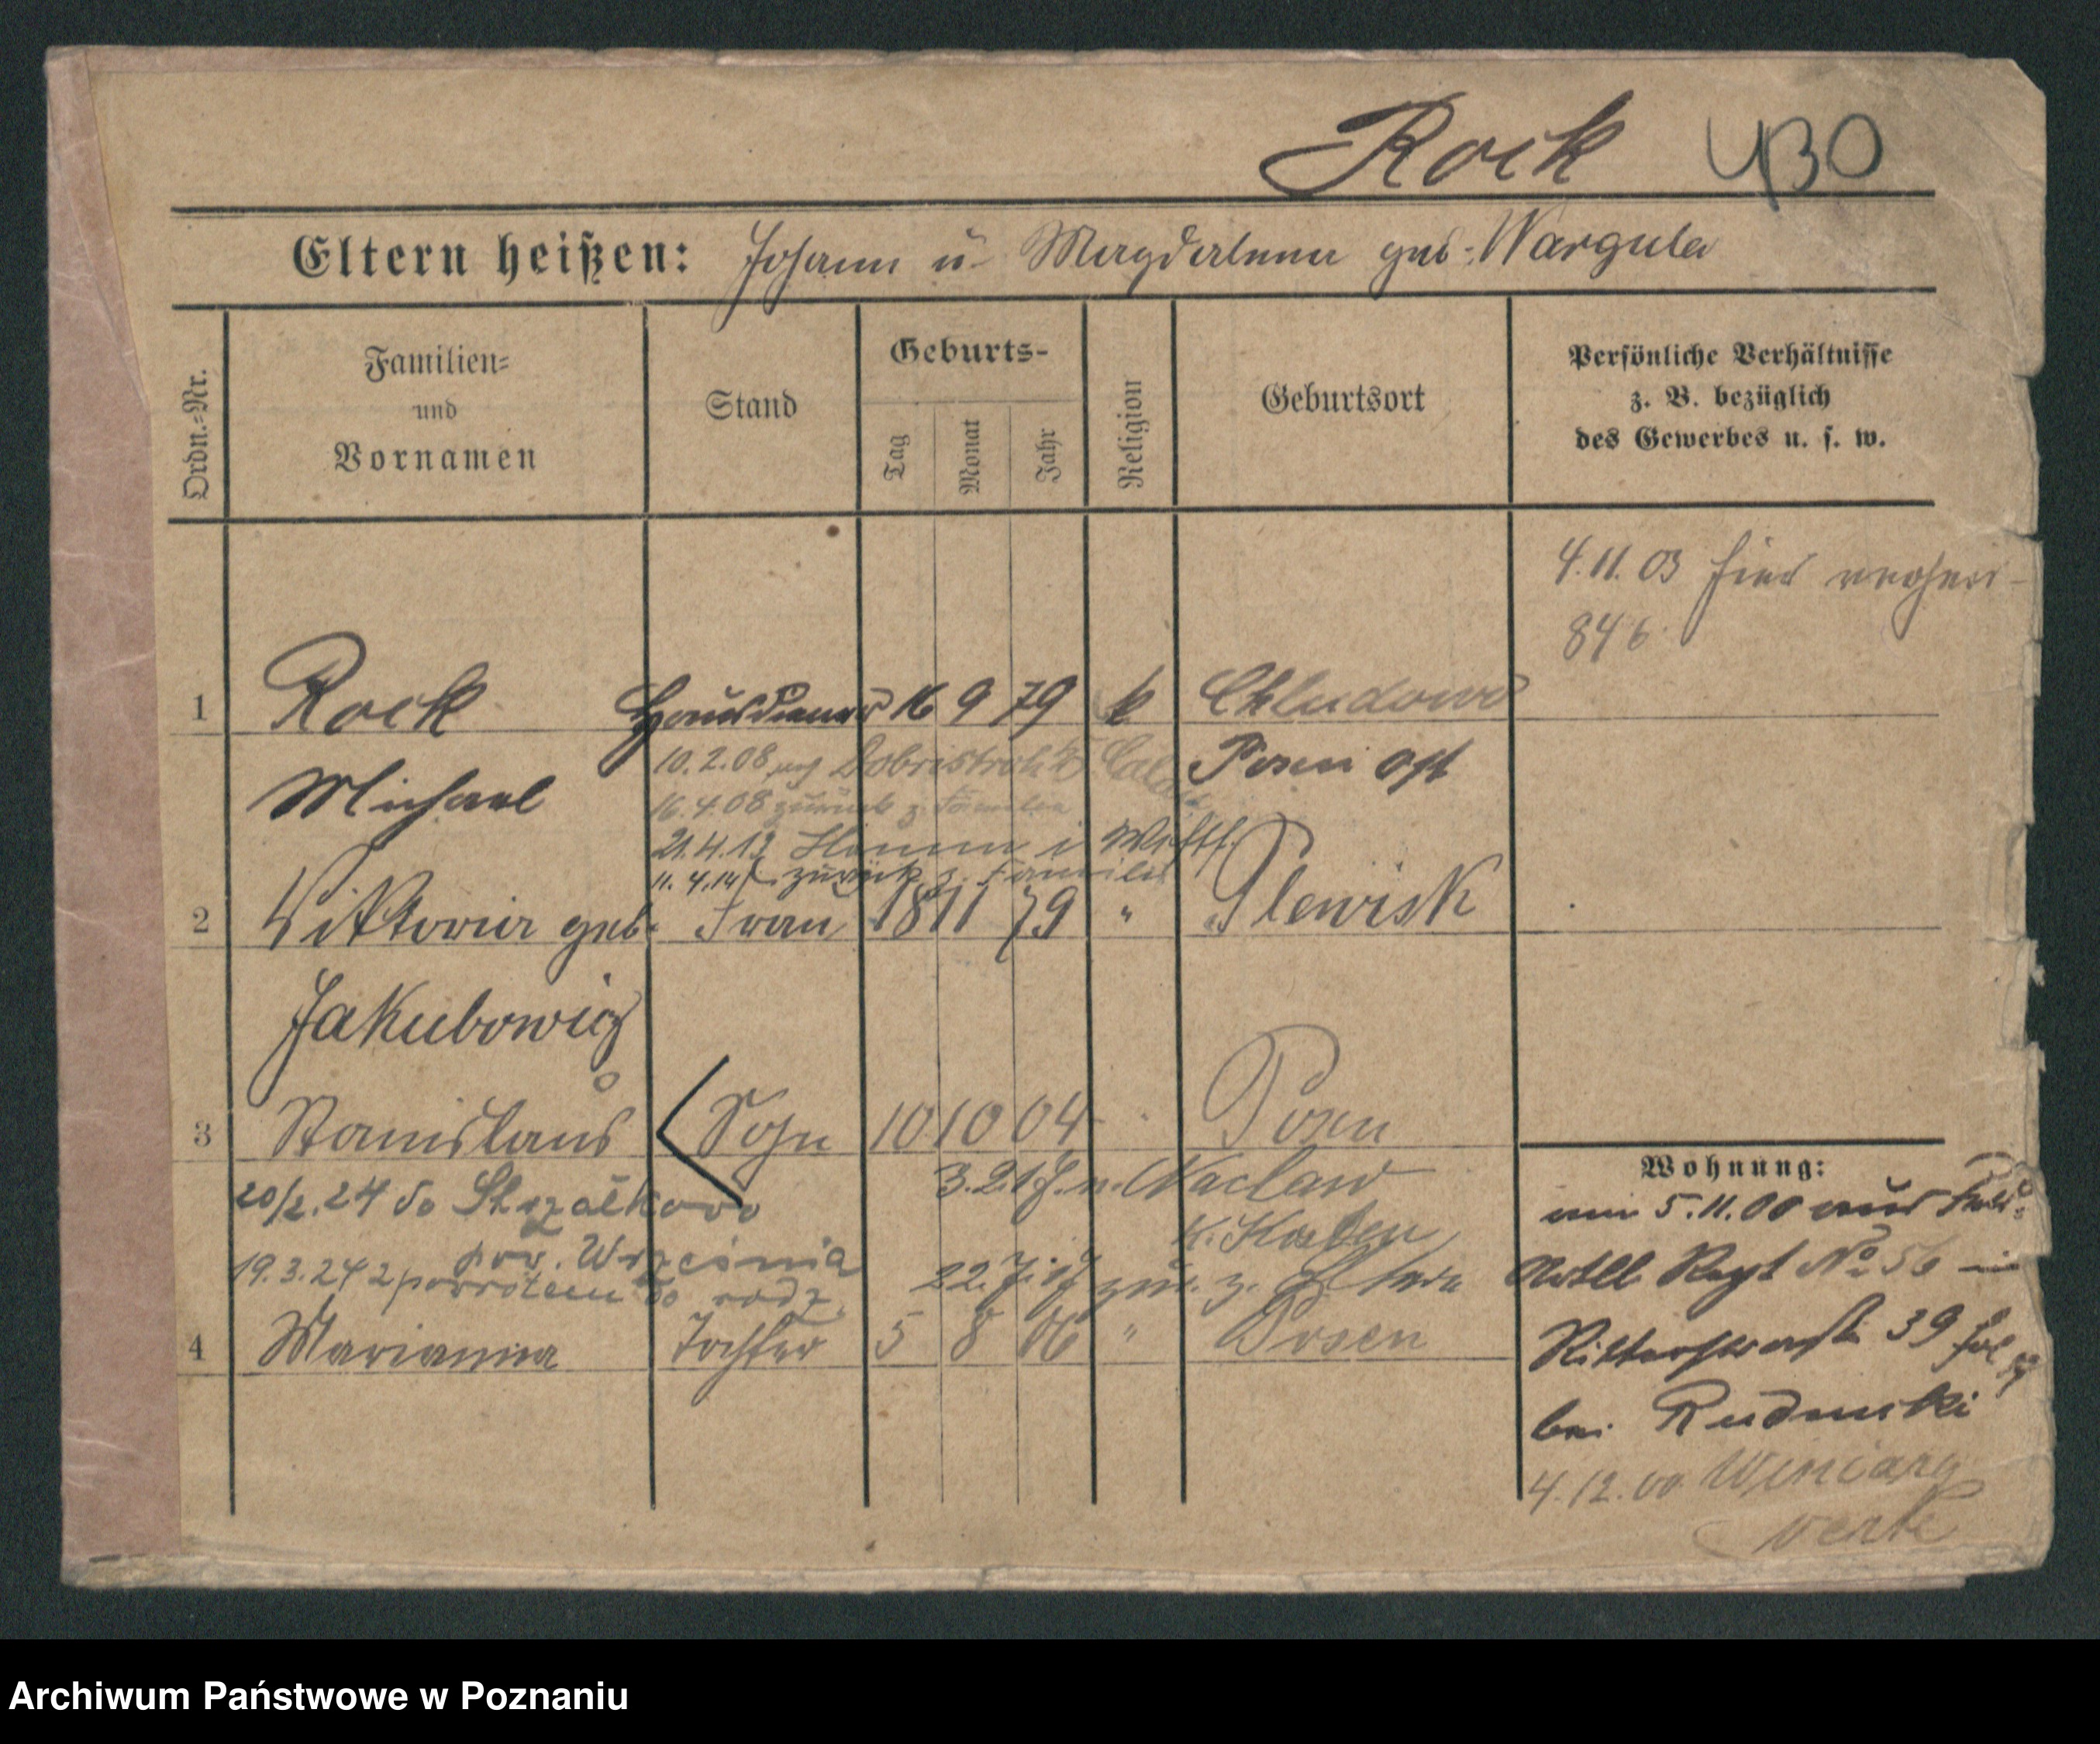 Rock 430
Eltern heißen: Johann u Magdalena geb. Wargula
Ordn.-Nr.
Familien-
und
Vornamen
Stand
Geburts-
Tag
Monat
Jahr
Religion
Geburtsort
Persönliche Verhältnisse
z. B. bezüglich
des Gewerbes u. s. w.
4.11.03 hier
846
1 Rock Hausdiener 16 9 79 k Chludowo
10.2.08 Posen Ost
Michael
16.4.08 zurück z. Familie
21.4.13 Hamm i Westf.
11.4.14 zurück z. Familie
2 Viktoria geb. Frau 18 11 79 " Plewisk
Jakubowicz
3 Stanislaus Sohn 10 10 04 Posen
20/2.24 do Strzałkowo
3.2.17 n. Waclaw
K. Kosten
pow. Września
19.3.24 z powrotem do rodz.
22.7.17 zur. z. Eltern
4 Marianna Tochter 5 8 06 " Posen
Wohnung:
5.11.00 aus Feld-
Artll Regt No 56 in
Ritterstraße 39
bei
4.12.00 Winiary
verte
Archiwum Państwowe w Poznaniu